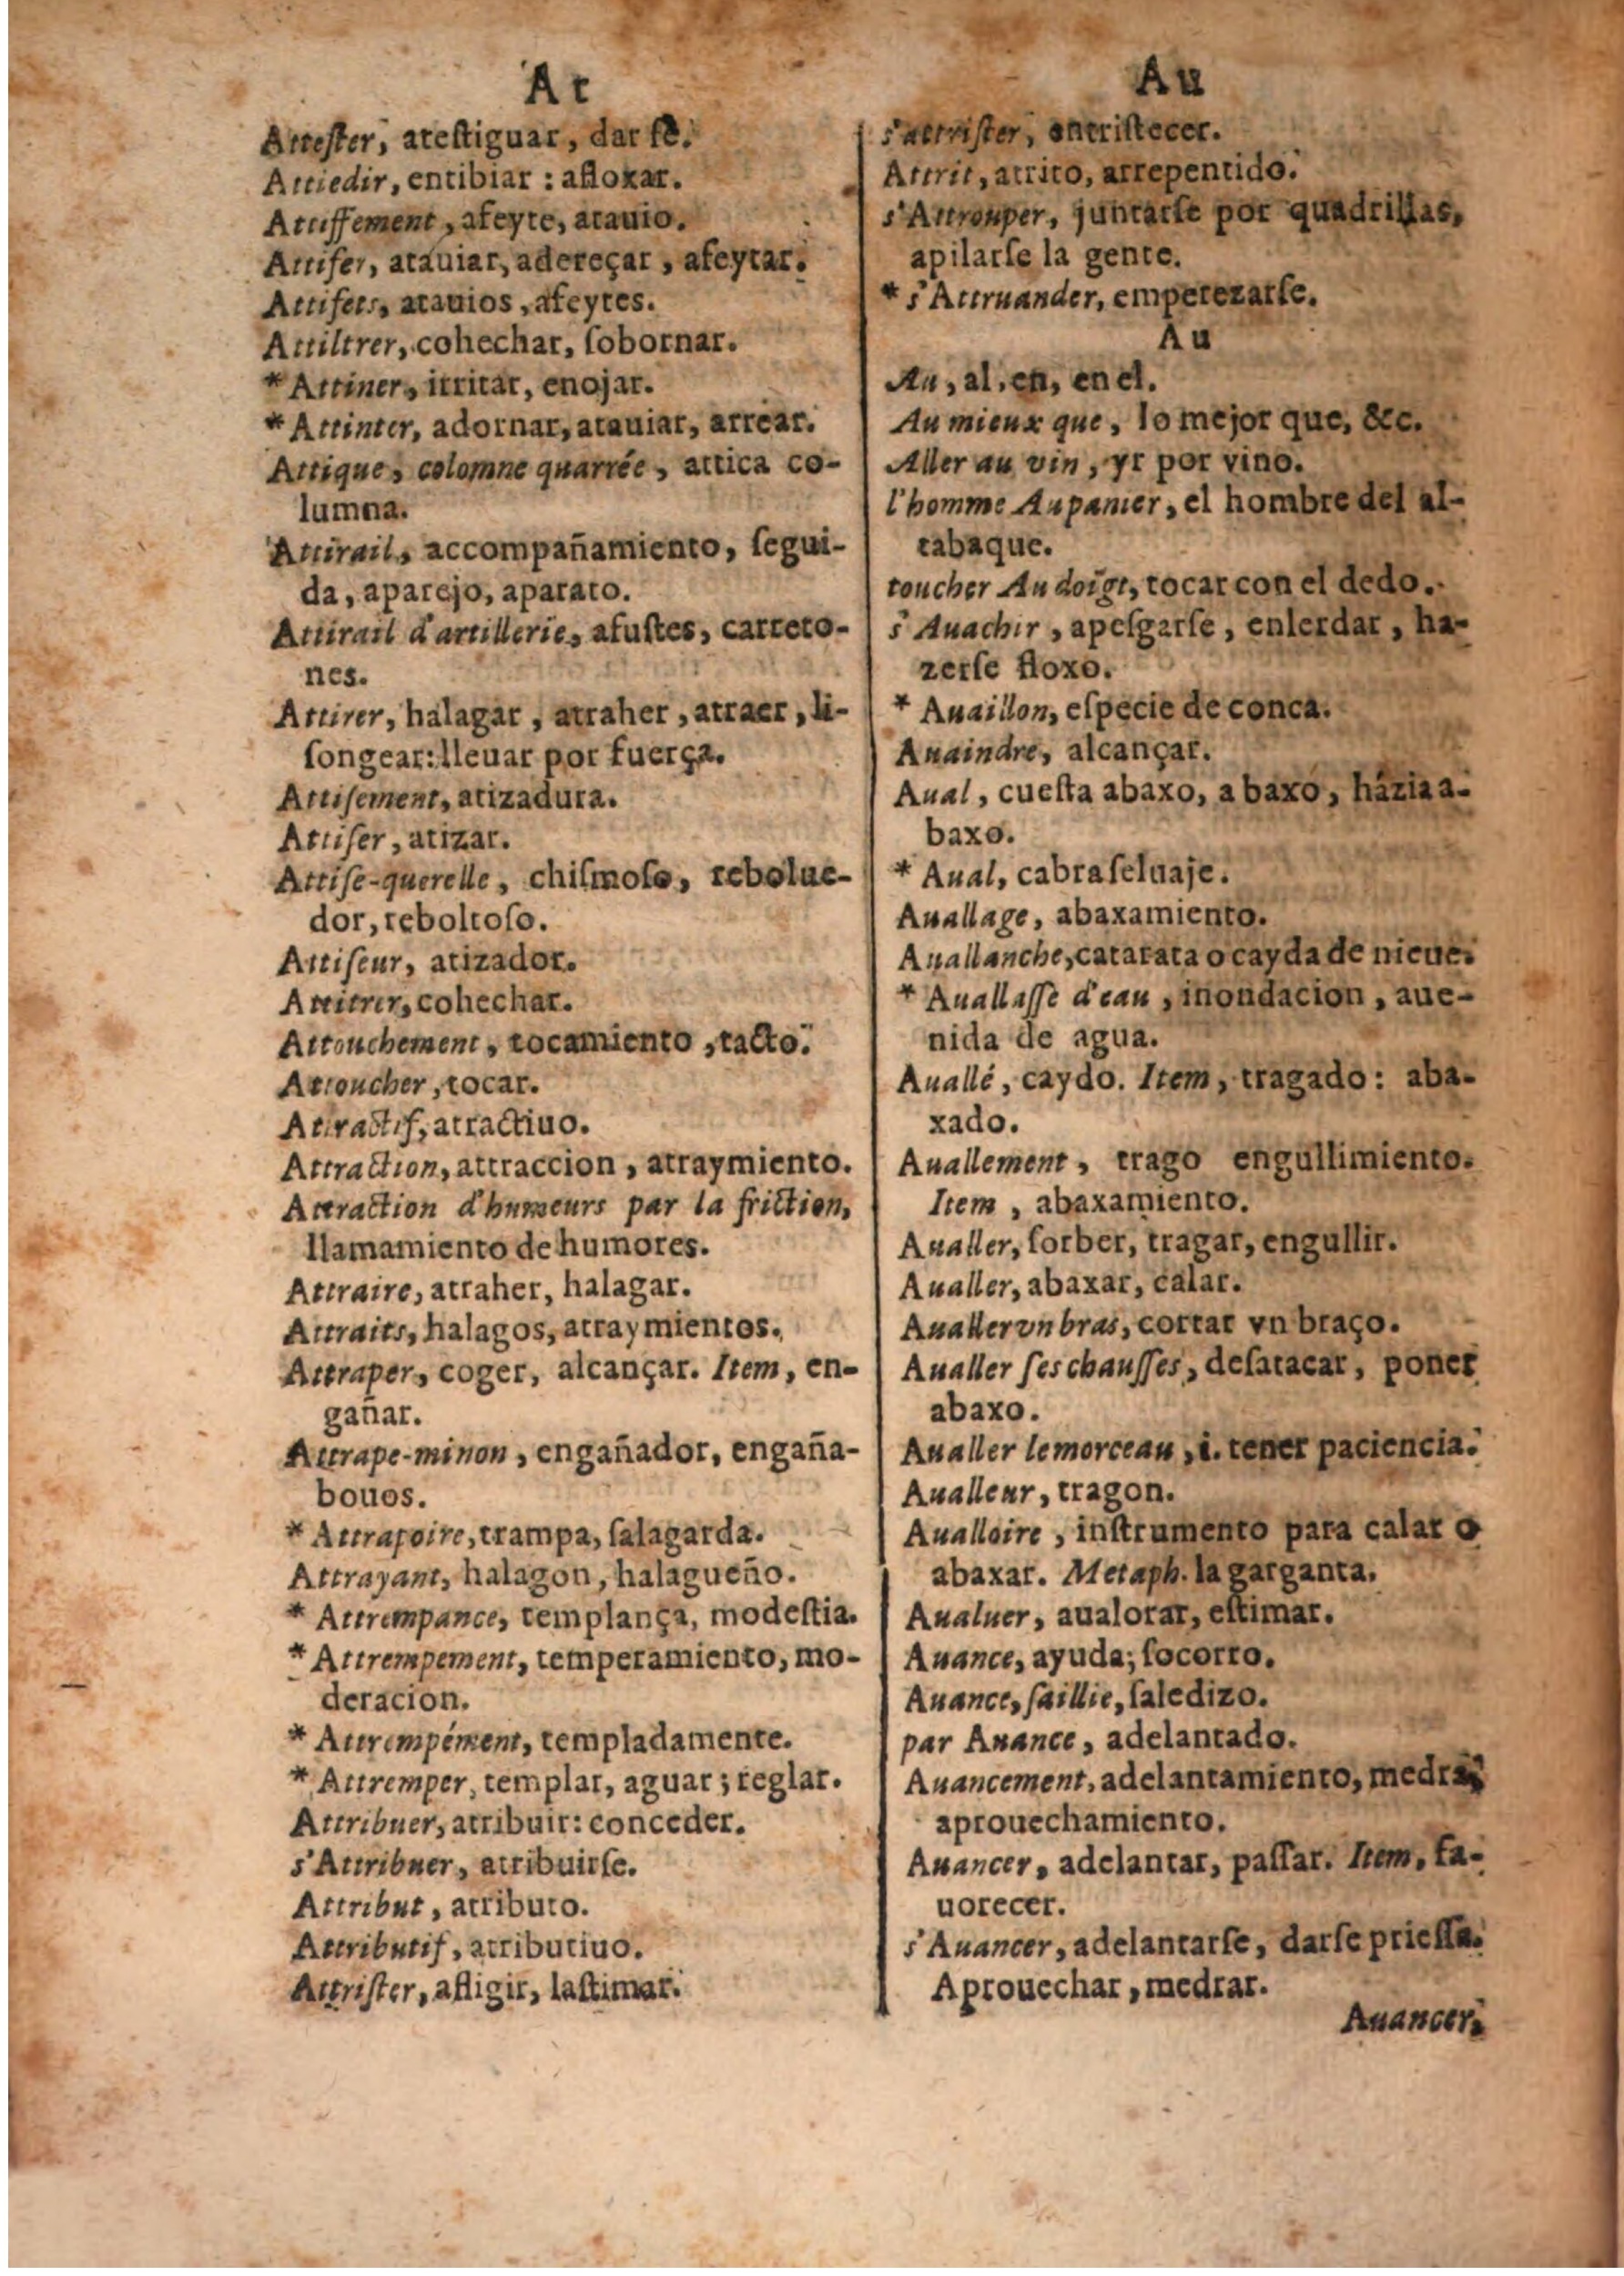 At
Attester, atestiguar, dar fè.
Attiedir, entibiar : afloxar.
Attiffement, afeyte, atauio.
Attifer, atauiar, adereçar, afeytar.
Attifets, atauios, afeytes.
Attiltrer, cohechar, ſobornar.
* Attiner, irritar, enojar.
* Attinter, adornar, atauiar, arrear.
Attique, colomne quarrée, attica co-
lumna.
Attirail, accompañamiento, ſegui-
da, aparejo, aparato.
Attirail d'artillerie, afuſtes, carreto-
nes.
Attirer, halagar, atraher, atraer, li-
ſongear: lleuar por fuerça.
Attiſement, atizadura.
Attiſer, atizar.
Attiſe-querelle, chiſmoſo, rebolue-
dor, reboltoſo.
Attiſeur, atizador.
Attitrer, cohechar.
Attouchement, tocamiento, tacto.
Attoucher, tocar.
Attractif, atractiuo.
Attraction, attraccion, atraymiento.
Attraction d'humeurs par la friction,
llamamiento de humores.
Attraire, atraher, halagar.
Attraits, halagos, atraymientos.
Attraper, coger, alcançar. Item, en-
gañar.
Attrape-minon, engañador, engaña-
bouos.
* Attrapoire, trampa, ſalagarda.
Attrayant, halagon, halagueño.
* Attrempance, templança, modeſtia.
* Attrempement, temperamiento, mo-
deracion.
* Attrempément, templadamente.
* Attremper, templar, aguar; reglar.
Attribuer, atribuir: conceder.
s'Attribuer, atribuirſe.
Attribut, atributo.
Attributif, atributiuo.
Attriſter, afligir, laſtimar.
Au
s'attriſter, entriſtecer.
Attrit, atrito, arrepentido.
s'Attrouper, juntarſe por quadrillas,
apilarſe la gente.
* s'Attruander, emperezarſe.
Au
Au, al, en, en el.
Au mieux que, lo mejor que, &c.
Aller au vin, yr por vino.
l'homme Au panier, el hombre del al-
tabaque.
toucher Au doigt, tocar con el dedo.
s'Auachir, apeſgarſe, enlerdar, ha-
zerſe floxo.
* Auaillon, eſpecie de conca.
Auaindre, alcançar.
Aual, cueſta abaxo, a baxo, házia a-
baxo.
* Aual, cabra ſeluaje.
Auallage, abaxamiento.
Auallanche, catarata o cayda de nieue.
* Auallaſſe d'eau, inondacion, aue-
nida de agua.
Auallé, caydo. Item, tragado: aba-
xado.
Auallement, trago engullimiento.
Item, abaxamiento.
Aualler, ſorber, tragar, engullir.
Aualler, abaxar, calar.
Aualler vn bras, cortar vn braço.
Aualler ſes chauſſes, deſatacar, poner
abaxo.
Aualler le morceau, i. tener paciencia.
Aualleur, tragon.
Aualloire, inſtrumento para calar o
abaxar. Metaph. la garganta.
Aualuer, aualorar, eſtimar.
Auance, ayuda; ſocorro.
Auance, ſaillie, ſaledizo.
par Auance, adelantado.
Auancement, adelantamiento, medra,
aprouechamiento.
Auancer, adelantar, paſſar. Item, fa-
uorecer.
s'Auancer, adelantarſe, darſe prieſſa.
Aprouechar, medrar.
Auancer,